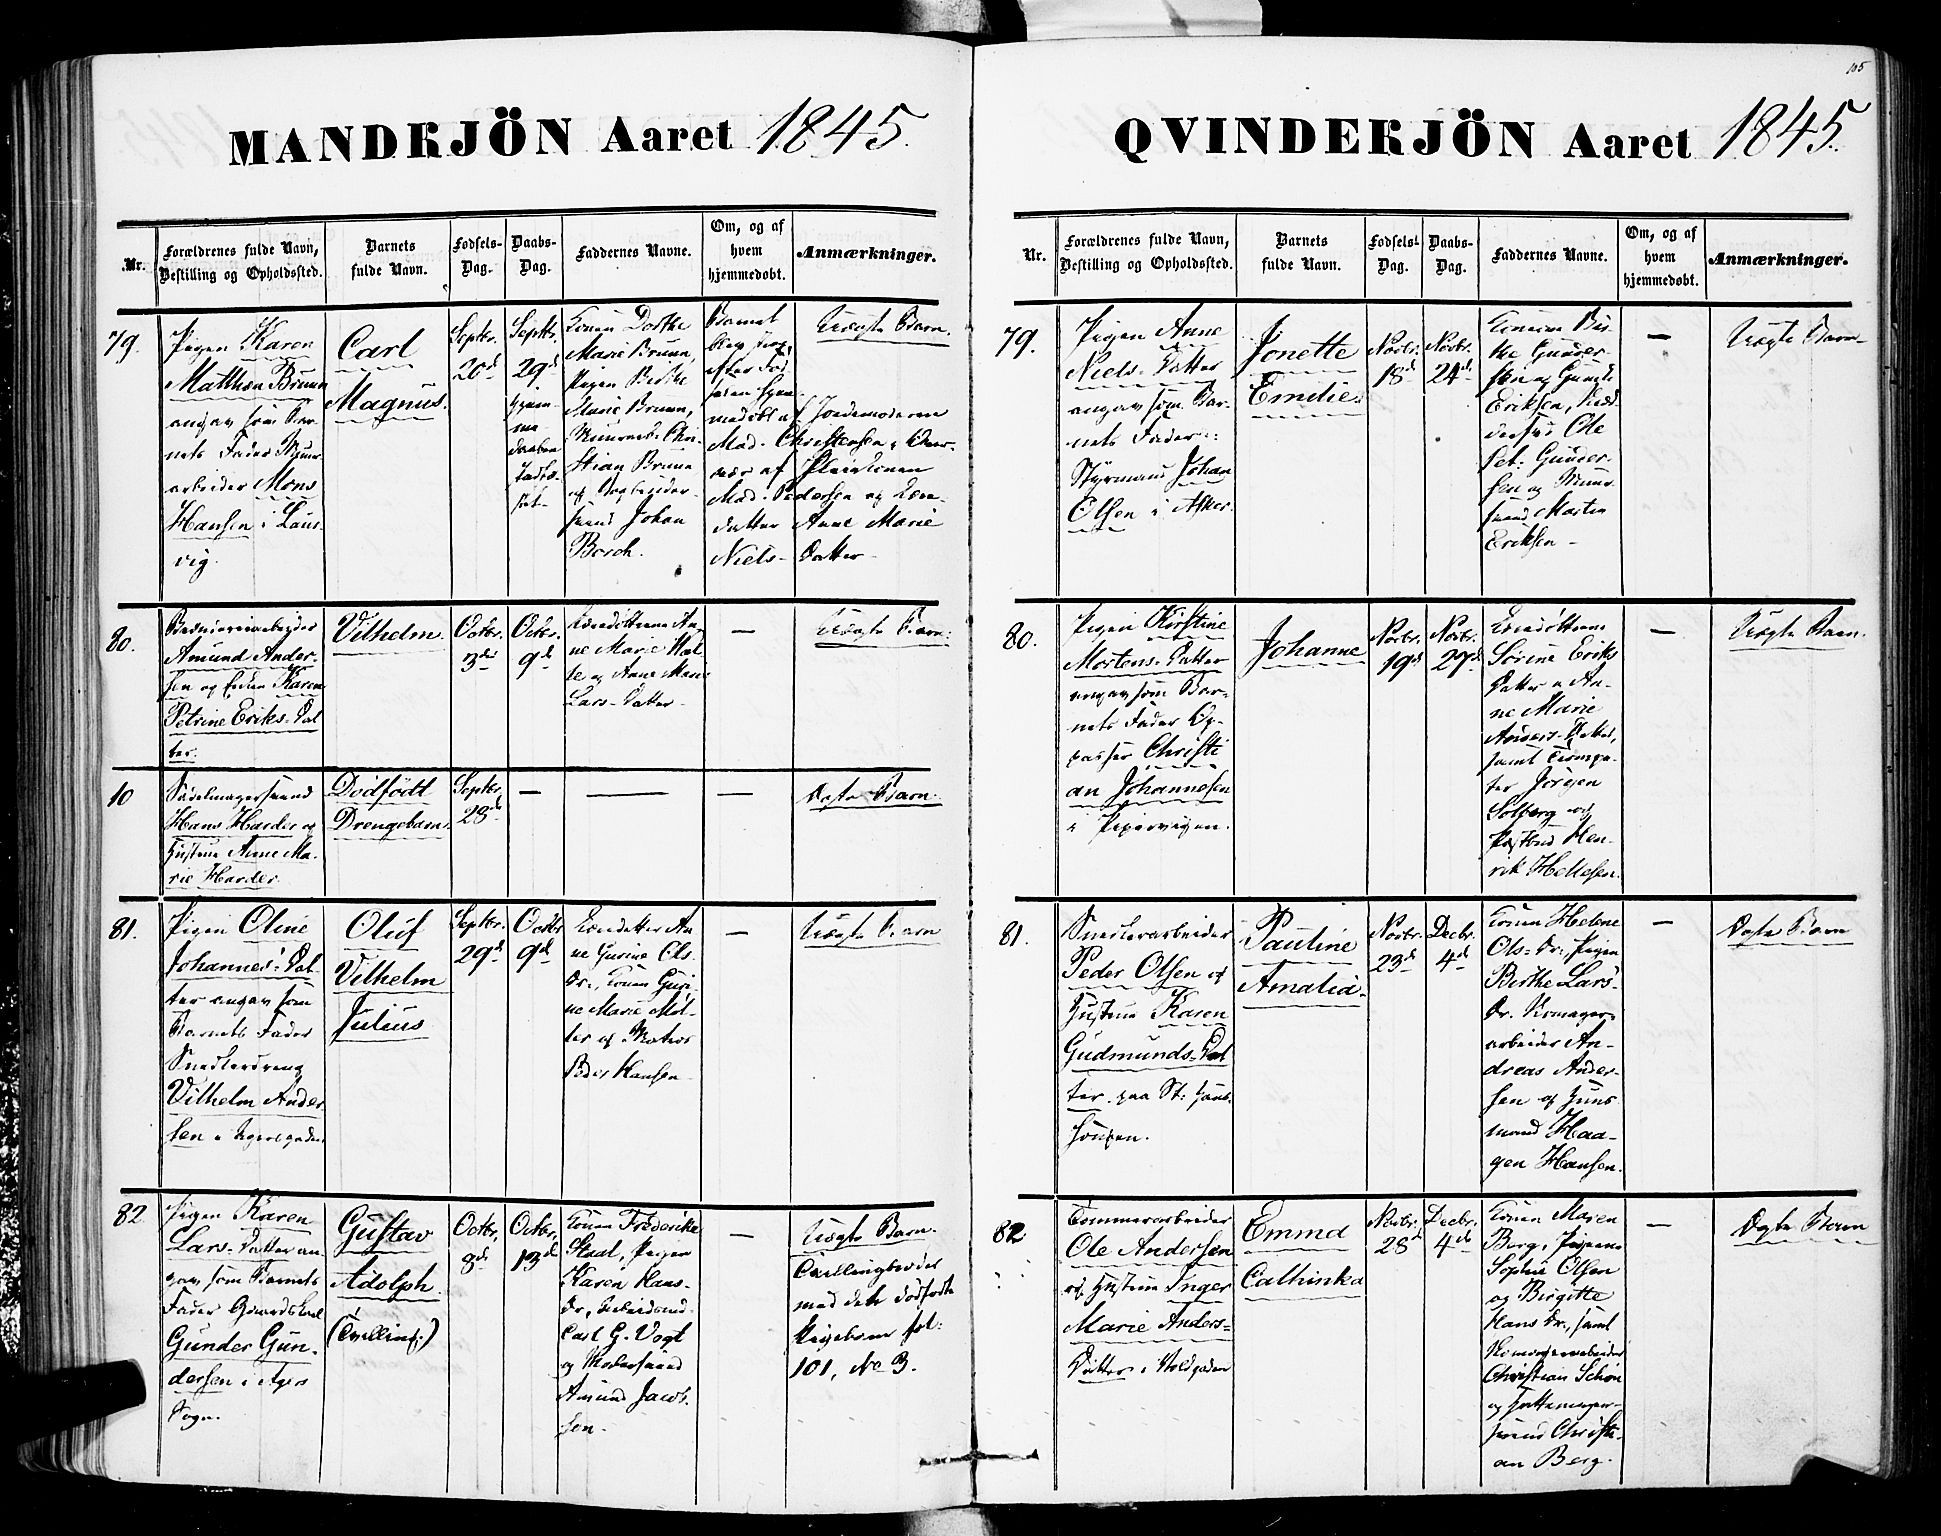 105
MANDKJÖN Aaret 1845.
Nr.
Forældrenes fulde Navn,
Bestilling og Opholdssted.
Barnets
fulde Navn.
Fødsels-
Dag.
Daabs-
Dag.
Faddernes Navne.
Om, og af
hvem
hjemmedøbt.
Anmærkninger.
79.
Pigen Karen
Mathea Bruun
angav som Bar-
nets Fader Muur
arbeider Mons
Hansen i Laur-
vig.
Carl
Magnus.
Septbr.
20d
Septbr.
29d
Hjem-
me
daaben
Konen Dorthe
Marie Bruun,
Pigen Berthe
Marie Bruun,
Chri-
stian Bruun
og Bogbinder-
svend Johan
Borch.
Barnet
blev
efter Fød-
selen hjem-
medøbt af Jordemoderen
Mad. Christensen
af
Mad. Pedersen og
datter Anne Marie
Niels-Datter
Uægte Barn.
80.
Amund Ander-
sen og Karen
Petrine Eriks-Dat
ter.
Vilhelm.
Octbr.
3die
Octbr.
9d
An-
ne Marie
og Anne Marie
Lars-Datter
—
Uægte Barn.
10
Sadelmagersvend
Hans Harder og
Hustrue Anne Ma-
rie Harder.
Dødfødt
Drengebarn.
Septbr.
28d
—
—
—
Ægte Barn.
81.
Pigen Oline
Johannes-Dat-
ter angav som
Barnets Fader
Snedkerdreng
Vilhelm Ander
sen
Oluf
Vilhelm
Julius
Septbr.
29d
Octbr
9d
An-
ne Gurine Ols-
Dr., Konen Guri-
ne Marie Møl-
ler og Matros
Peder Hansen
—
Uægte Barn
82
Pigen Karen
Lars-Datter an-
gav som Barnets
Fader
Gunder Gun-
dersen i Agers
Sogn.
Gustav
Adolph.
(Tvilling.)
Octbr.
8d
Octbr.
13d
Konen Frederikke
Staal, Pigen
Karen Hans-
Dr.,
Carl G. Vogt
og
Amund Jacob-
sen.
—
Uægte Barn.
Tvillingbroder
med det dødfødte
Pigebarn fol:
101, No 3.
QVINDEKJÖN Aaret 1845.
Nr.
Forældrenes fulde Navn,
Bestilling og Opholdssted.
Barnets
fulde Navn.
Fødsels-
Dag.
Daabs-
Dag.
Faddernes Navne.
Om, og af
hvem
hjemmedøbt.
Anmærkninger.
79.
Pigen Anne
Niels-Datter
angav som Bar-
nets Fader:
Styrmand Johan
Olsen i Asker.
Jonette
Emilie.
Novbr.
18d
Novbr.
24d
Konerne Bir-
the Gunder-
sen og
Eriksen,
Ole
Pet: Gunder-
sen og Muur-
svend Morten
Eriksen
—
Uægte Barn
80.
Pigen Kirstine
Mortens-Datter
angav som Bar-
nets Fader Op-
passer Christi
an Johannesen
i Pipervigen.
Johanne
Novbr.
19d
Novbr.
27d
Sørine Eriks
Datter og An-
ne Marie
Anders-Datter,
samt Trompe-
ter Jørgen
Solberg og
Hen-
rik Hellesen.
—
Uægte Barn.
81.
Snedkerarbeider
Peder Olsen og
Hustrue Karen
Gudmunds-Dat
ter paa St: Hans-
haugen.
Pauline
Amalia.
Novbr.
23d
Decbr.
4d
Konen Helene
Ols-Dr., Pigen
Birthe Lars-
Dr.
arbeider An-
dreas Ander-
sen og Huus-
mand Haa-
gen Hansen.
—
Ægte Barn
82
Tømmerarbeider
Ole Andersen
og Hustrue Inger
Marie Anders-
Datter i Voldgaden
Emma
Cathinka
Novbr.
28d
Decbr.
4d
Konen Maren
Berg, Pigerne
Sophie Olsen
og Birgitte
Hans Dr., samt
Christian Schøn
og Pottemager-
svend Christi-
an Berg.
—
Ægte Barn